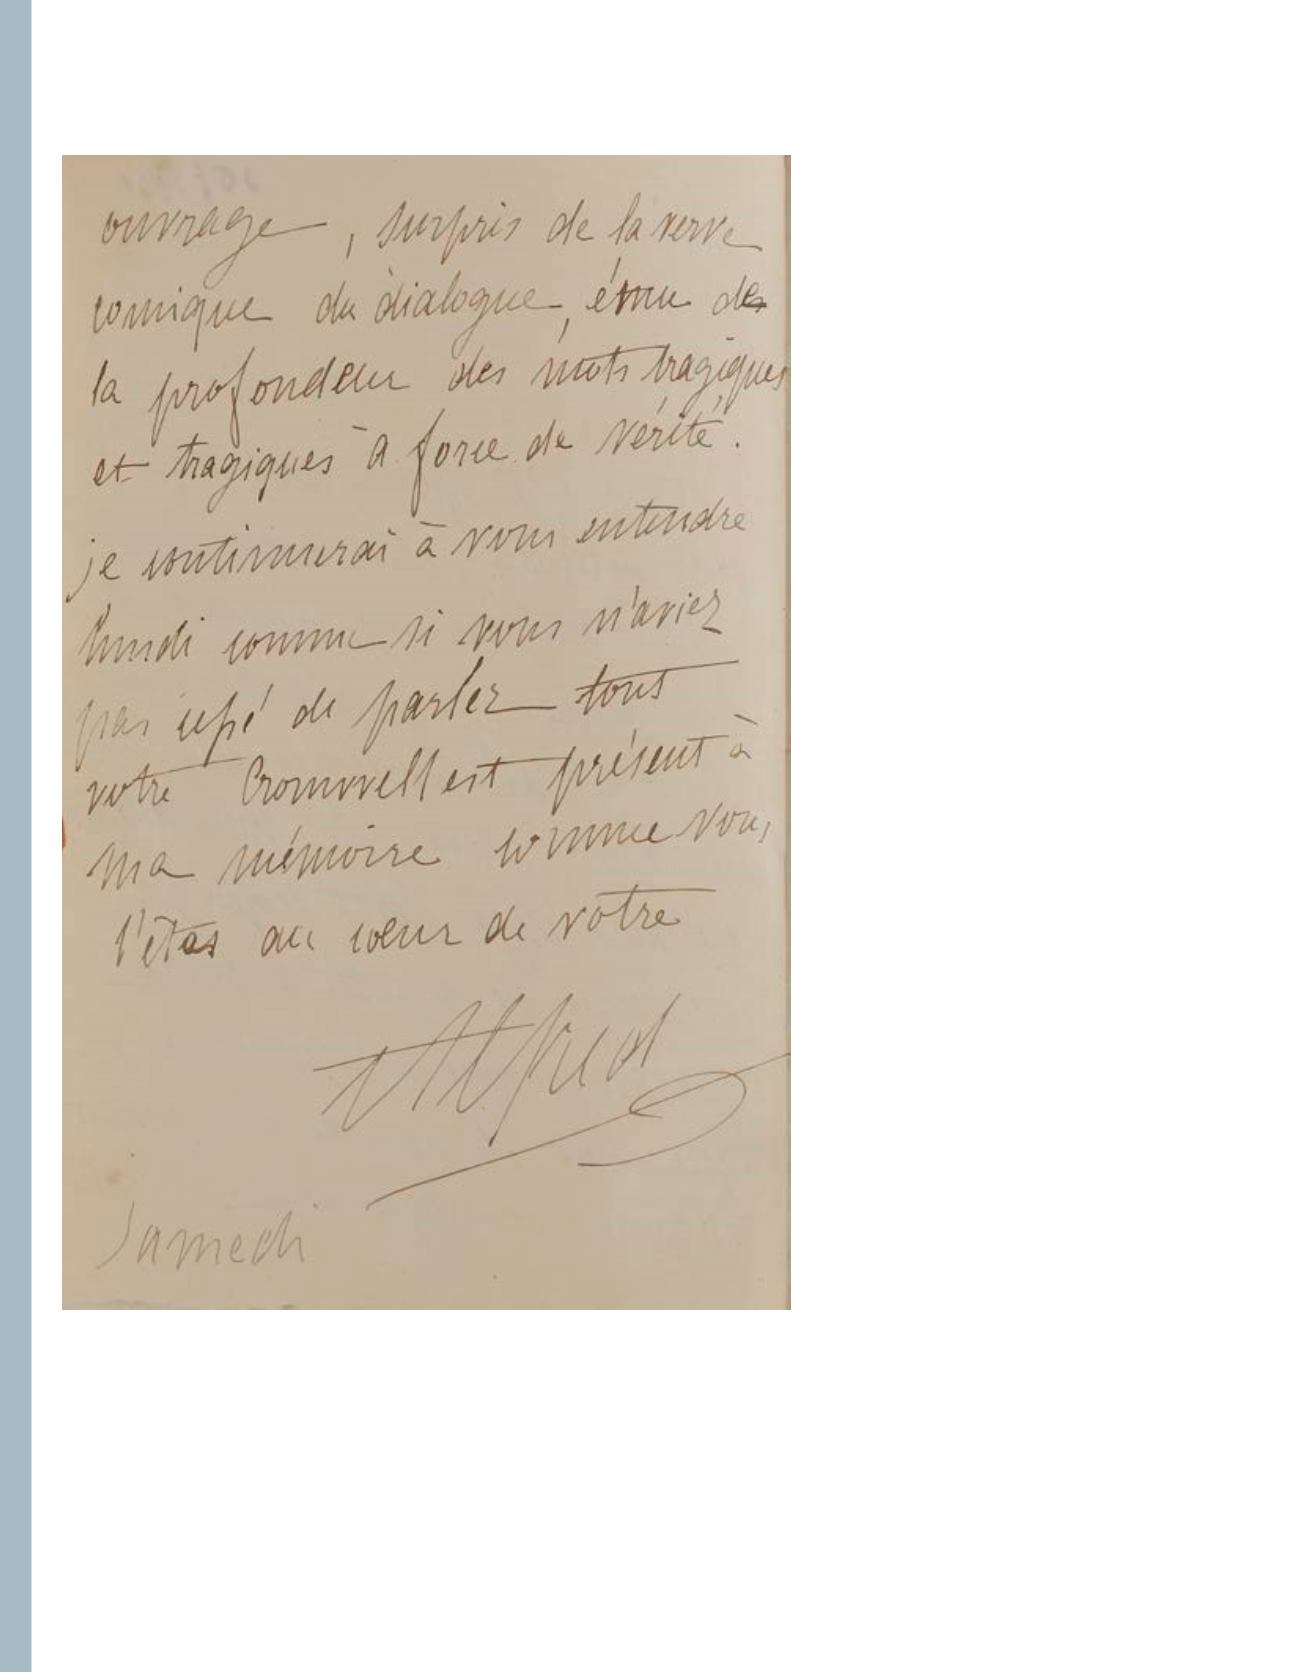 ouvrage, surpris de la verve
comique du dialogue, ému de
la profondeur des mots tragiques
et tragiques à force de vérité.
je continuerai à vous entendre
lundi comme si vous n'aviez
pas cessé de parler tout
votre Cromwell est présent à
ma mémoire comme vous
l'êtes au coeur de votre
Alfred
Samedi